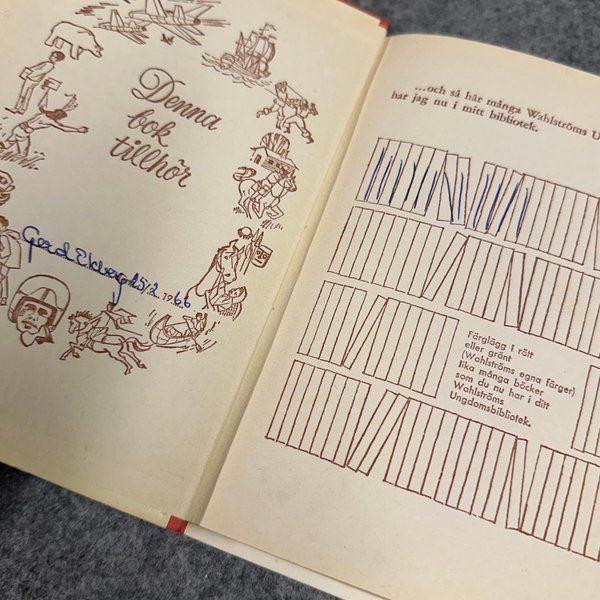 Denna
bok
tillhör
Gerd Ekberg 25/2 1966
...och så här många Wahlströms U
har jag nu i mitt bibliotek.
Färglägg i rött
eller grönt
(Wahlströms egna färger)
lika många böcker
som du nu har i ditt
Wahlströms
Ungdomsbibliotek.